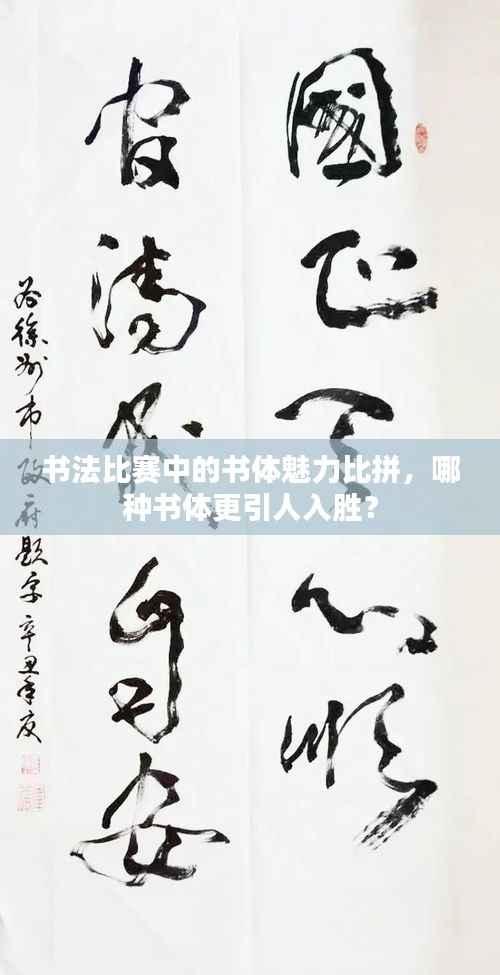 國正天心順
官清民自安
为徐州市政府题字 辛丑年夏
书法比赛中的书体魅力比拼，哪
种书体更引人入胜？